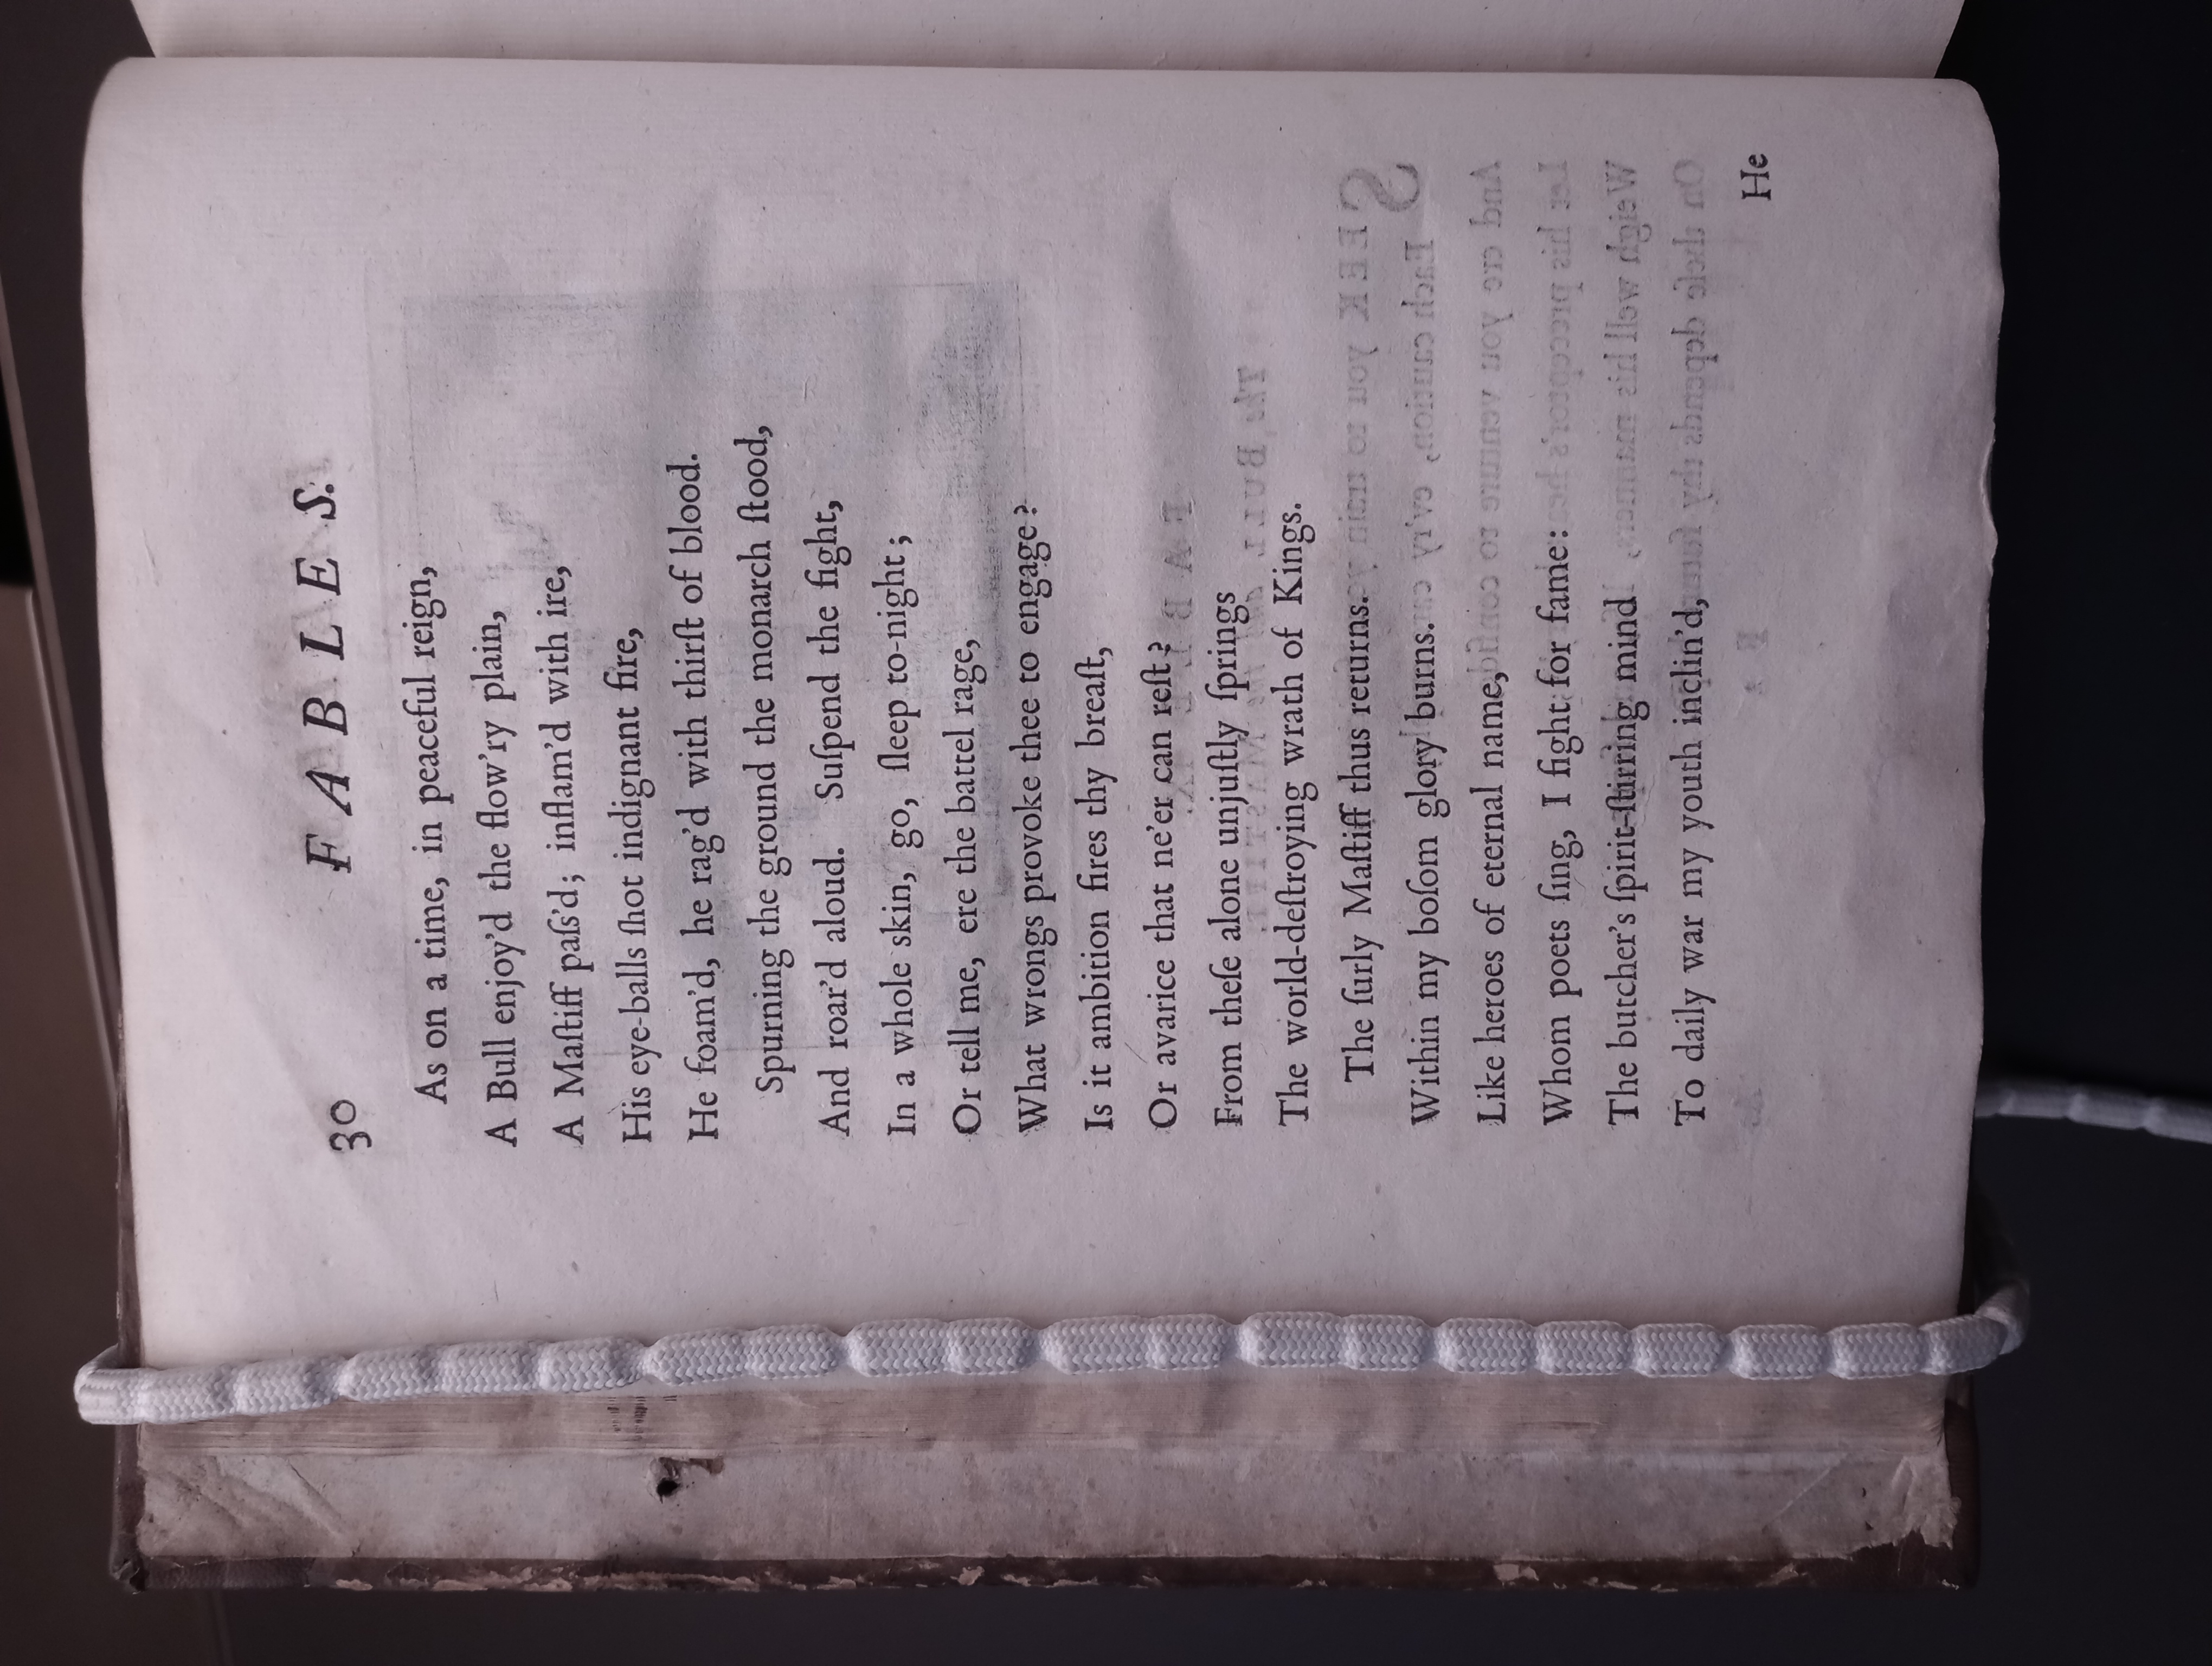 30 FABLES.
As on a time, in peaceful reign,
A Bull enjoy'd the flow'ry plain,
A Maſtiff paſs'd; inflam'd with ire,
His eye-balls ſhot indignant fire,
He foam'd, he rag'd with thirſt of blood.
Spurning the ground the monarch ſtood,
And roar'd aloud. Suſpend the fight,
In a whole skin, go, ſleep to-night;
Or tell me, ere the battel rage,
What wrongs provoke thee to engage?
Is it ambition fires thy breaſt,
Or avarice that ne'er can reſt?
From theſe alone unjuſtly ſprings
The world-deſtroying wrath of Kings.
The ſurly Maſtiff thus returns.
Within my boſom glory burns.
Like heroes of eternal name,
Whom poets ſing, I fight for fame:
The butcher's ſpirit-ſtirring mind
To daily war my youth inclin'd,
He